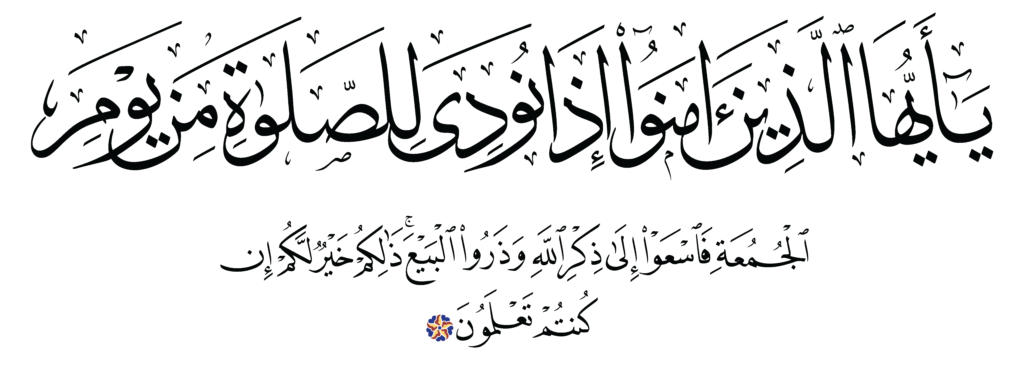 يَٰٓأَيُّهَا ٱلَّذِينَ ءَامَنُوٓا۟ إِذَا نُودِىَ لِلصَّلَوٰةِ مِن يَوْمِ
ٱلْجُمُعَةِ فَٱسْعَوْا۟ إِلَىٰ ذِكْرِ ٱللَّهِ وَذَرُوا۟ ٱلْبَيْعَ ۚ ذَٰلِكُمْ خَيْرٌ لَّكُمْ إِن
كُنتُمْ تَعْلَمُونَ